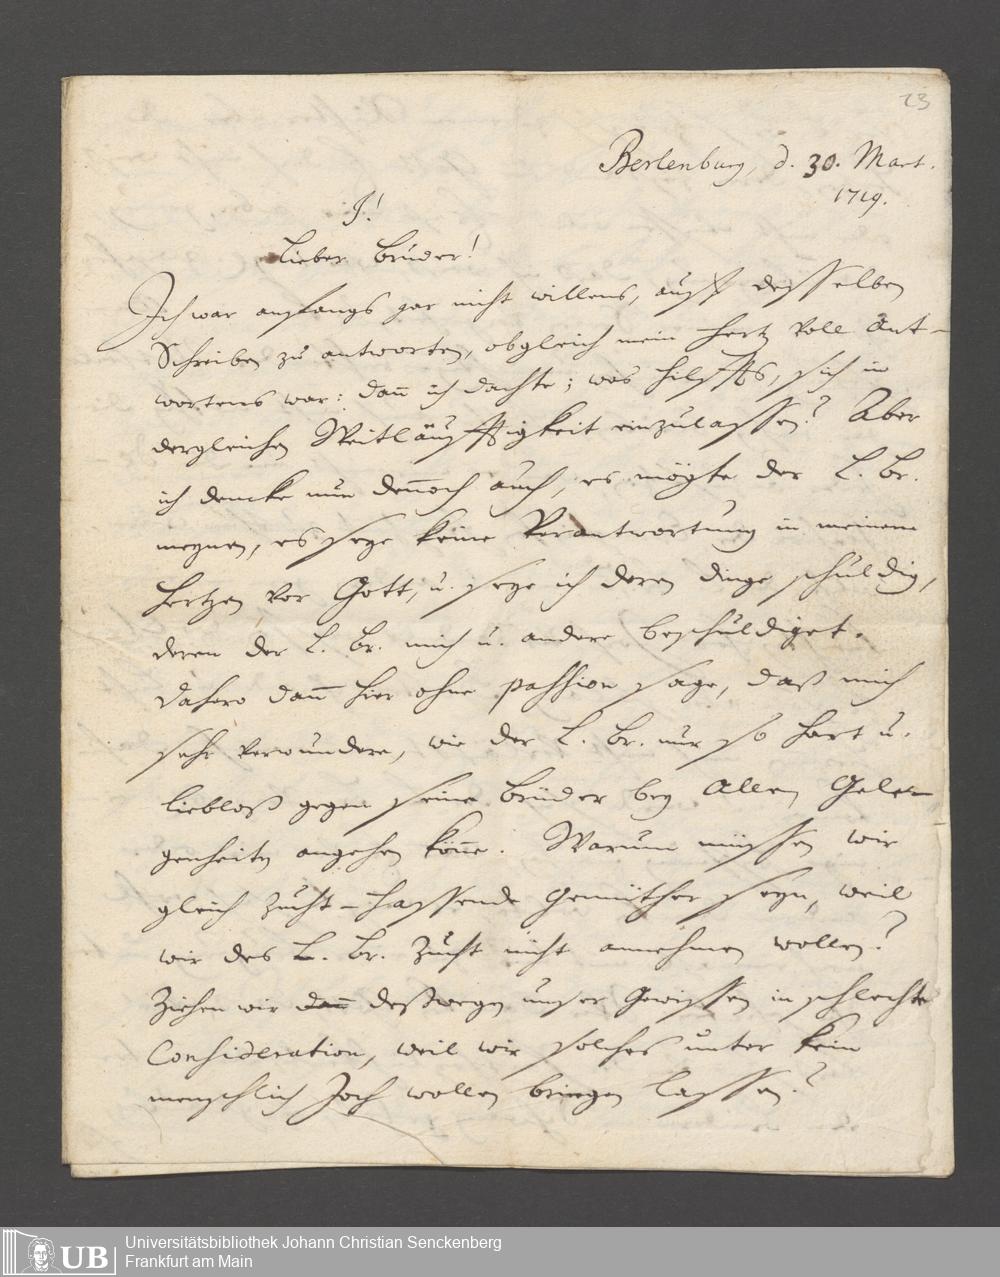 23
Berlenburg, d. 30. Mart.
1719.
J!
Lieber Bruder!
Ich war anfangs gar nicht willens, auff desselben
Schreiben zu antworten, obgleich mein Hertz voll Ant-
wortens war: dan̄ ich dachte; was hilffts, sich in
dergleichen Weitläuffigkeit einzulassen? Aber
ich dencke nun den̄och auch, es mögte der L. Br.
meynen, es seye keine Verantwortung in meinem
Hertzen vor Gott, u. seye ich deren dinge schuldig,
deren der L. Br. mich u. andere beschuldiget.
Dahero dan̄ hier ohne passion sage, daß mich
sehr verwundere, wie der L. Br. nur so hart u.
liebloß gegen seine Brüder bey allen Gele-
genheiten angehen kön̄e. Warum müssen wir
gleich Zucht-hassende Gemüther seyn, weil
wir des L. Br. Zucht nicht annehmen wollen?
Ziehen wir dan̄ deßwegen unser Gewissen in schlechte
Consideration, weil wir solches unter kein
menschlich Joch wollen bringen lassen?
UB
Universitätsbibliothek Johann Christian Senckenberg
Frankfurt am Main